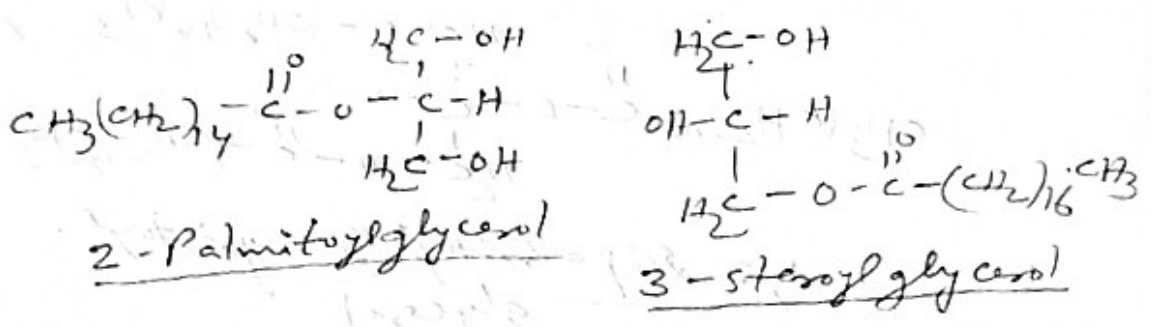 H2C-OH
CH3(CH2)14-C-O-C-H
O
H2C-OH
2-Palmitoylglycerol
H2C-OH
OH-C-H
O
H2C-O-C-(CH2)16CH3
3-steroylglycerol